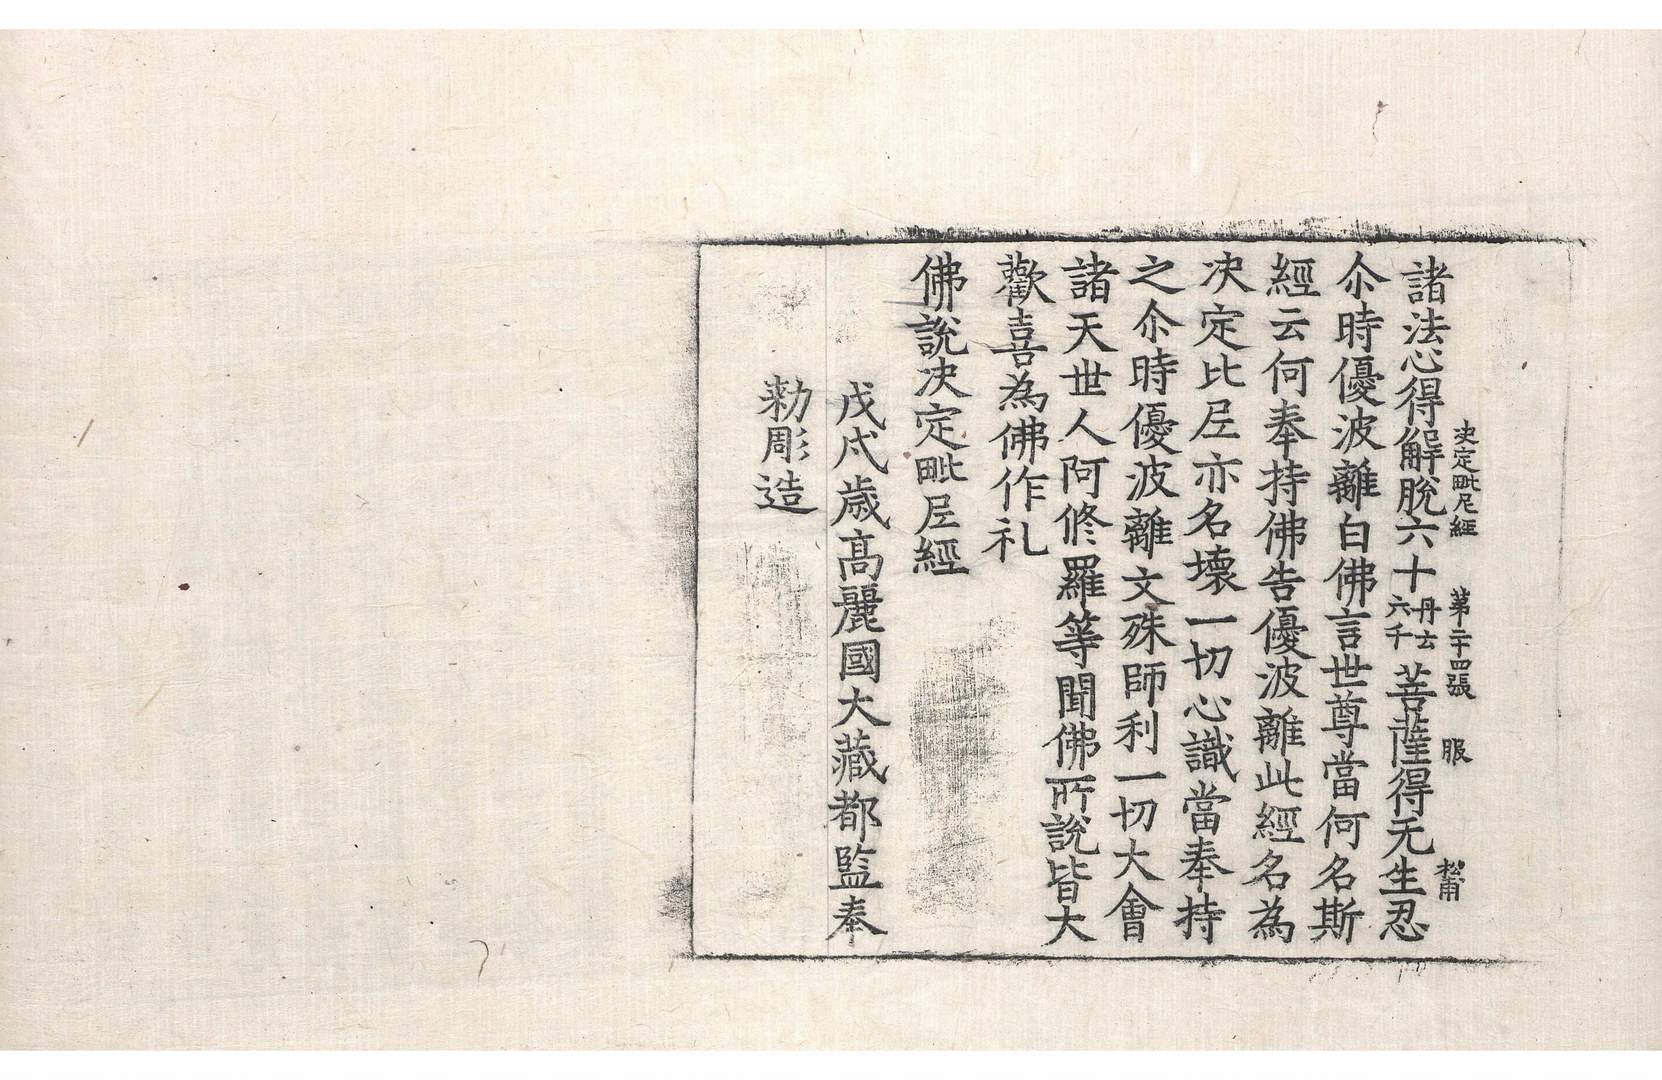 决定毗尼經 第二十四張 服 松甫
諸法心得解脫六十丹云六千菩薩得无生忍
尒時優波離白佛言世尊當何名斯
經云何奉持佛告優波離此經名為
决定比𡰱亦名壞一切心識當奉持
之尒時優波離文殊師利一切大會
諸天世人阿修羅等聞佛所說皆大
歡喜為佛作礼
佛說决定毗𡰱經
戊戌歲高麗國大藏都監奉
勑彫造